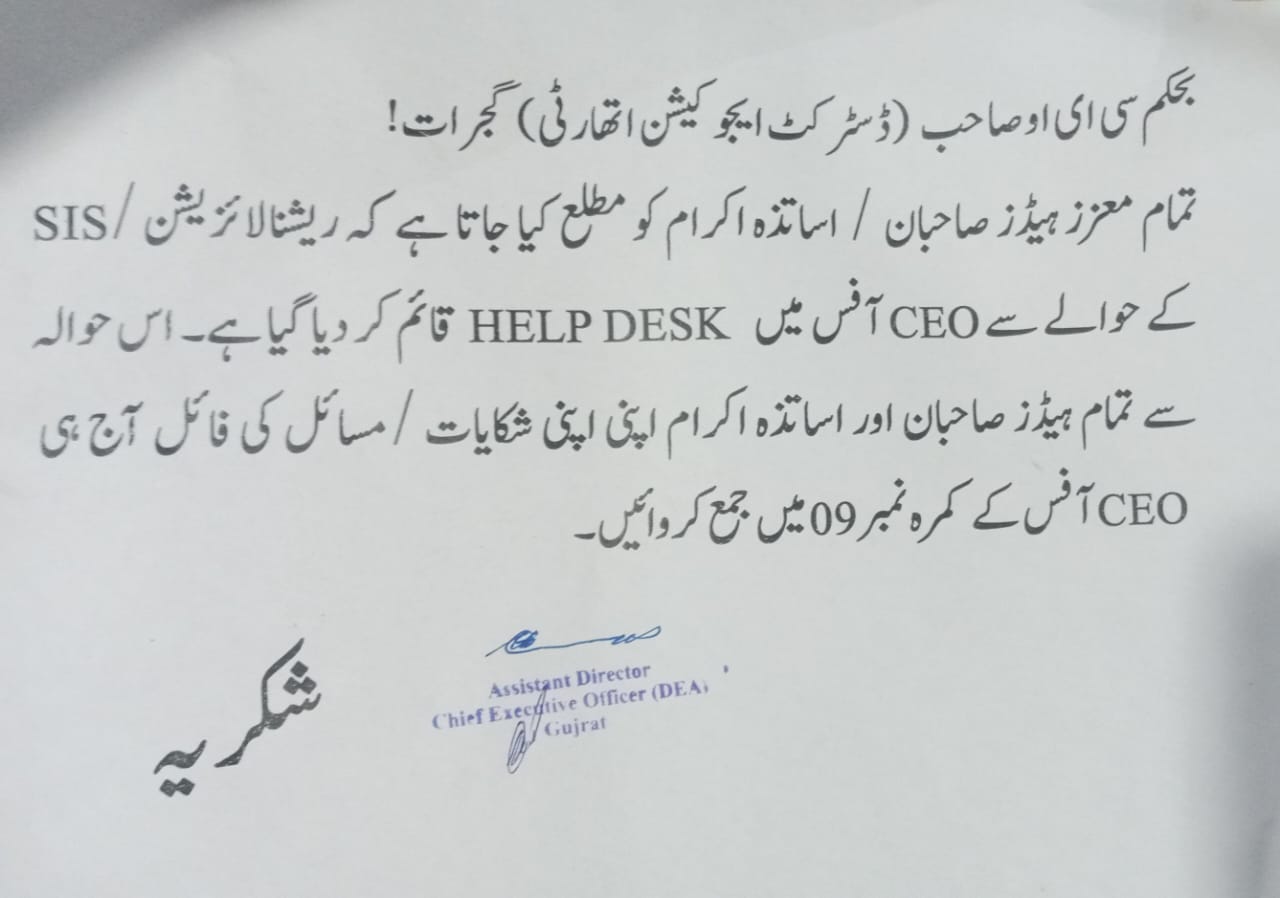 بحکم سی ای او صاحب (ڈسٹرکٹ ایجوکیشن اتھارٹی) گجرات!
تمام معزز ہیڈز صاحبان / اساتذہ اکرام کو مطلع کیا جاتا ہے کہ ریشنالائزیشن /SIS
کے حوالے سے CEO آفس میں HELP DESK قائم کر دیا گیا ہے۔ اس حوالہ
سے تمام ہیڈز صاحبان اور اساتذہ اکرام اپنی اپنی شکایات / مسائل کی فائل آج ہی
CEO آفس کے کمرہ نمبر 09 میں جمع کروائیں۔
Assistant Director
Chief Executive Officer (DEA)
Gujrat
شکریہ